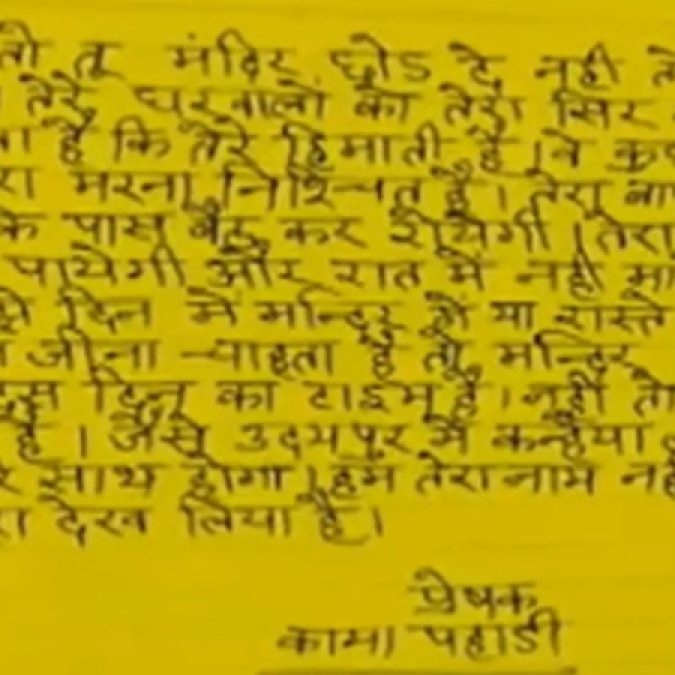 तो तू मंदिर छोड दे नही तो
तेरे घरवालो को तेरा सिर
है कि तेरे हिमाती है । वे
मरना निश्चित है । तेरा
के पास बैठ कर रोयेगी । तेरा
पायेगी और रात में नही
दिन में मन्दिर में या रास्ते
जीना चाहता है तो मन्दिर
दिन का टाइम है । नही तो
है । जैसे उदयपुर में कन्हैया
साथ होगा । हम तेरा नाम
देख लिया है ।
प्रेषक
कामा पहाडी